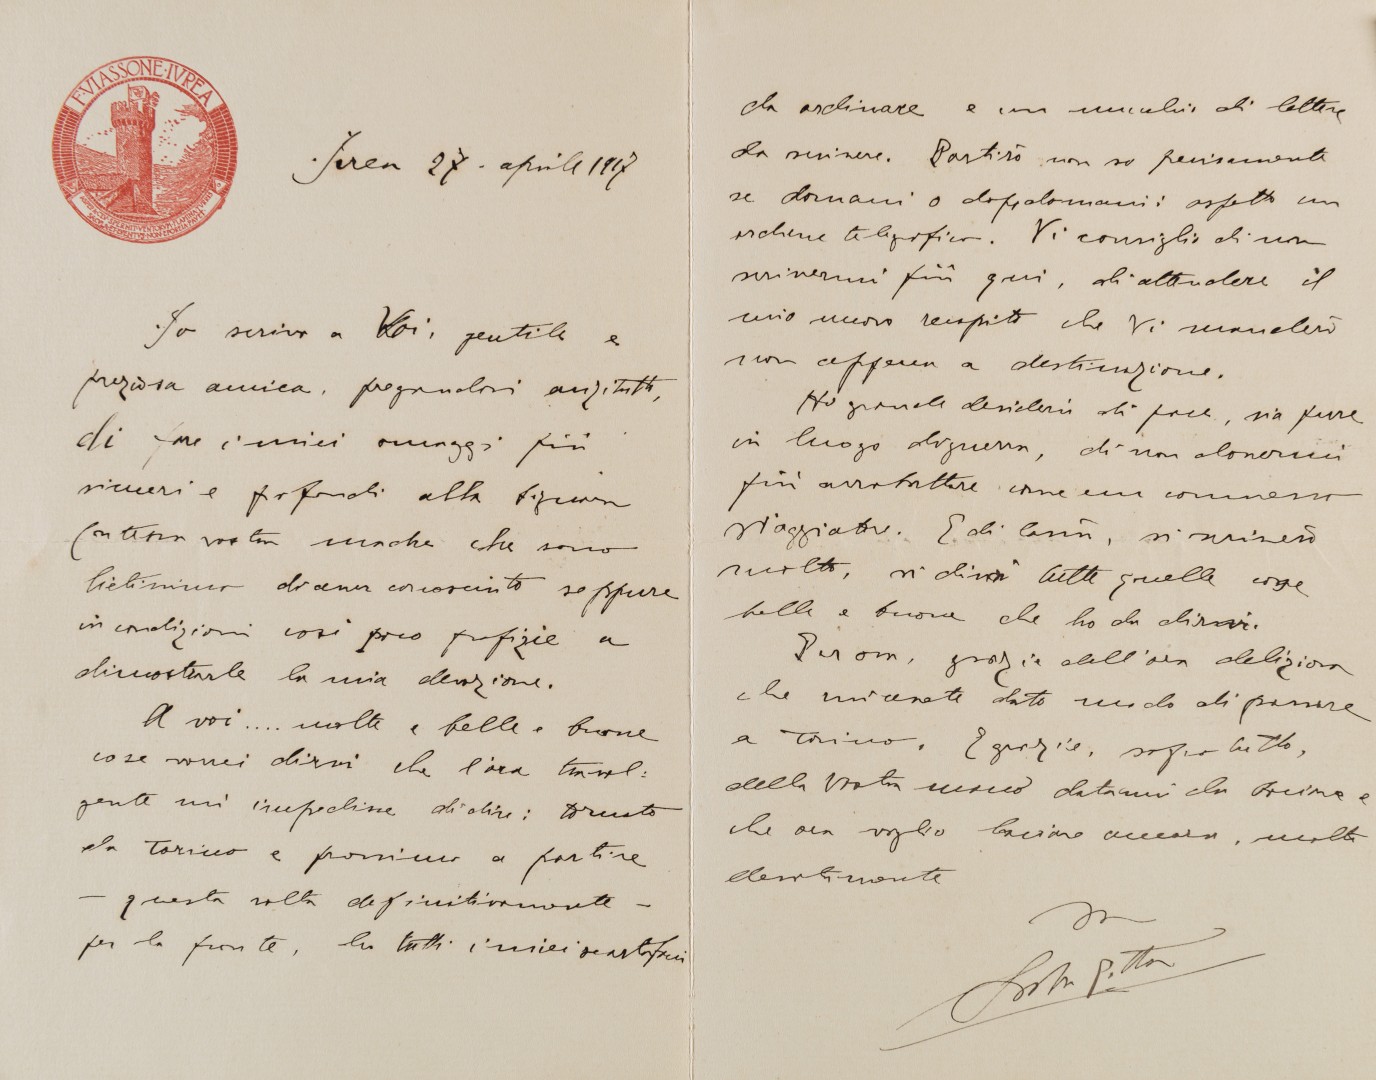 F·VIASSONE·IVREA
Ivrea 27 - aprile 1917
Io scrivo a Voi, gentile e
preziosa amica, pregandovi anzitutto,
di fare i miei omaggi più
sinceri e profondi alla Signora
Contessa vostra madre che sono
lietissimo di aver conosciuto seppure
in condizioni così poco propizie a
dimostrarle la mia devozione.
A voi .... molte e belle e buone
cose vorrei dirvi che l'ora travol:
gente mi impedisce di dire: tornato
da Torino e prossimo a partire
— questa volta definitivamente —
per la fronte, ho tutti i miei scartafacci
da ordinare e un mucchio di lettere
da scrivere. Partirò non so precisamente
se domani o dopodomani: aspetto un
ordine telegrafico. Vi consiglio di non
scrivermi più qui, di attendere il
mio nuovo recapito che Vi manderò
non appena a destinazione.
Ho grande desiderio di pace, sia pure
in luogo di guerra, di non dovermi
più arrabattare come un commesso
viaggiatore. E di lassù, vi scriverò
molto, vi dirò tutte quelle cose
belle e buone che ho da dirvi.
Per ora, grazie dell'ora deliziosa
che mi avete dato modo di passare
a Torino. E grazie, sopratutto,
della Vostra mano datami da baciare e
che ora voglio baciare ancora, molto
devotamente